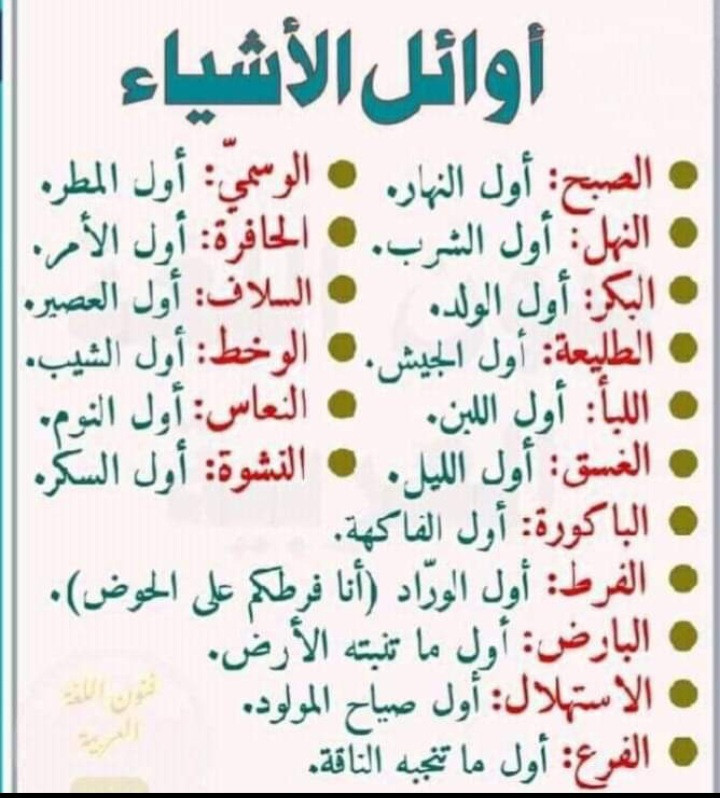 أوائل الأشياء
الصبح: أول النهار. الوسميّ: أول المطر.
النهل: أول الشرب. الحافرة: أول الأمر.
البكر: أول الولد. السلاف: أول العصير.
الطليعة: أول الجيش. الوخط: أول الشيب.
اللبأ: أول اللبن. النعاس: أول النوم.
الغسق: أول الليل. النشوة: أول السكر.
الباكورة: أول الفاكهة.
الفرط: أول الورّاد (أنا فرطكم على الحوض).
البارض: أول ما تنبته الأرض.
الاستهلال: أول صياح المولود.
الفرع: أول ما تنجبه الناقة.
فنون اللغة
العربية